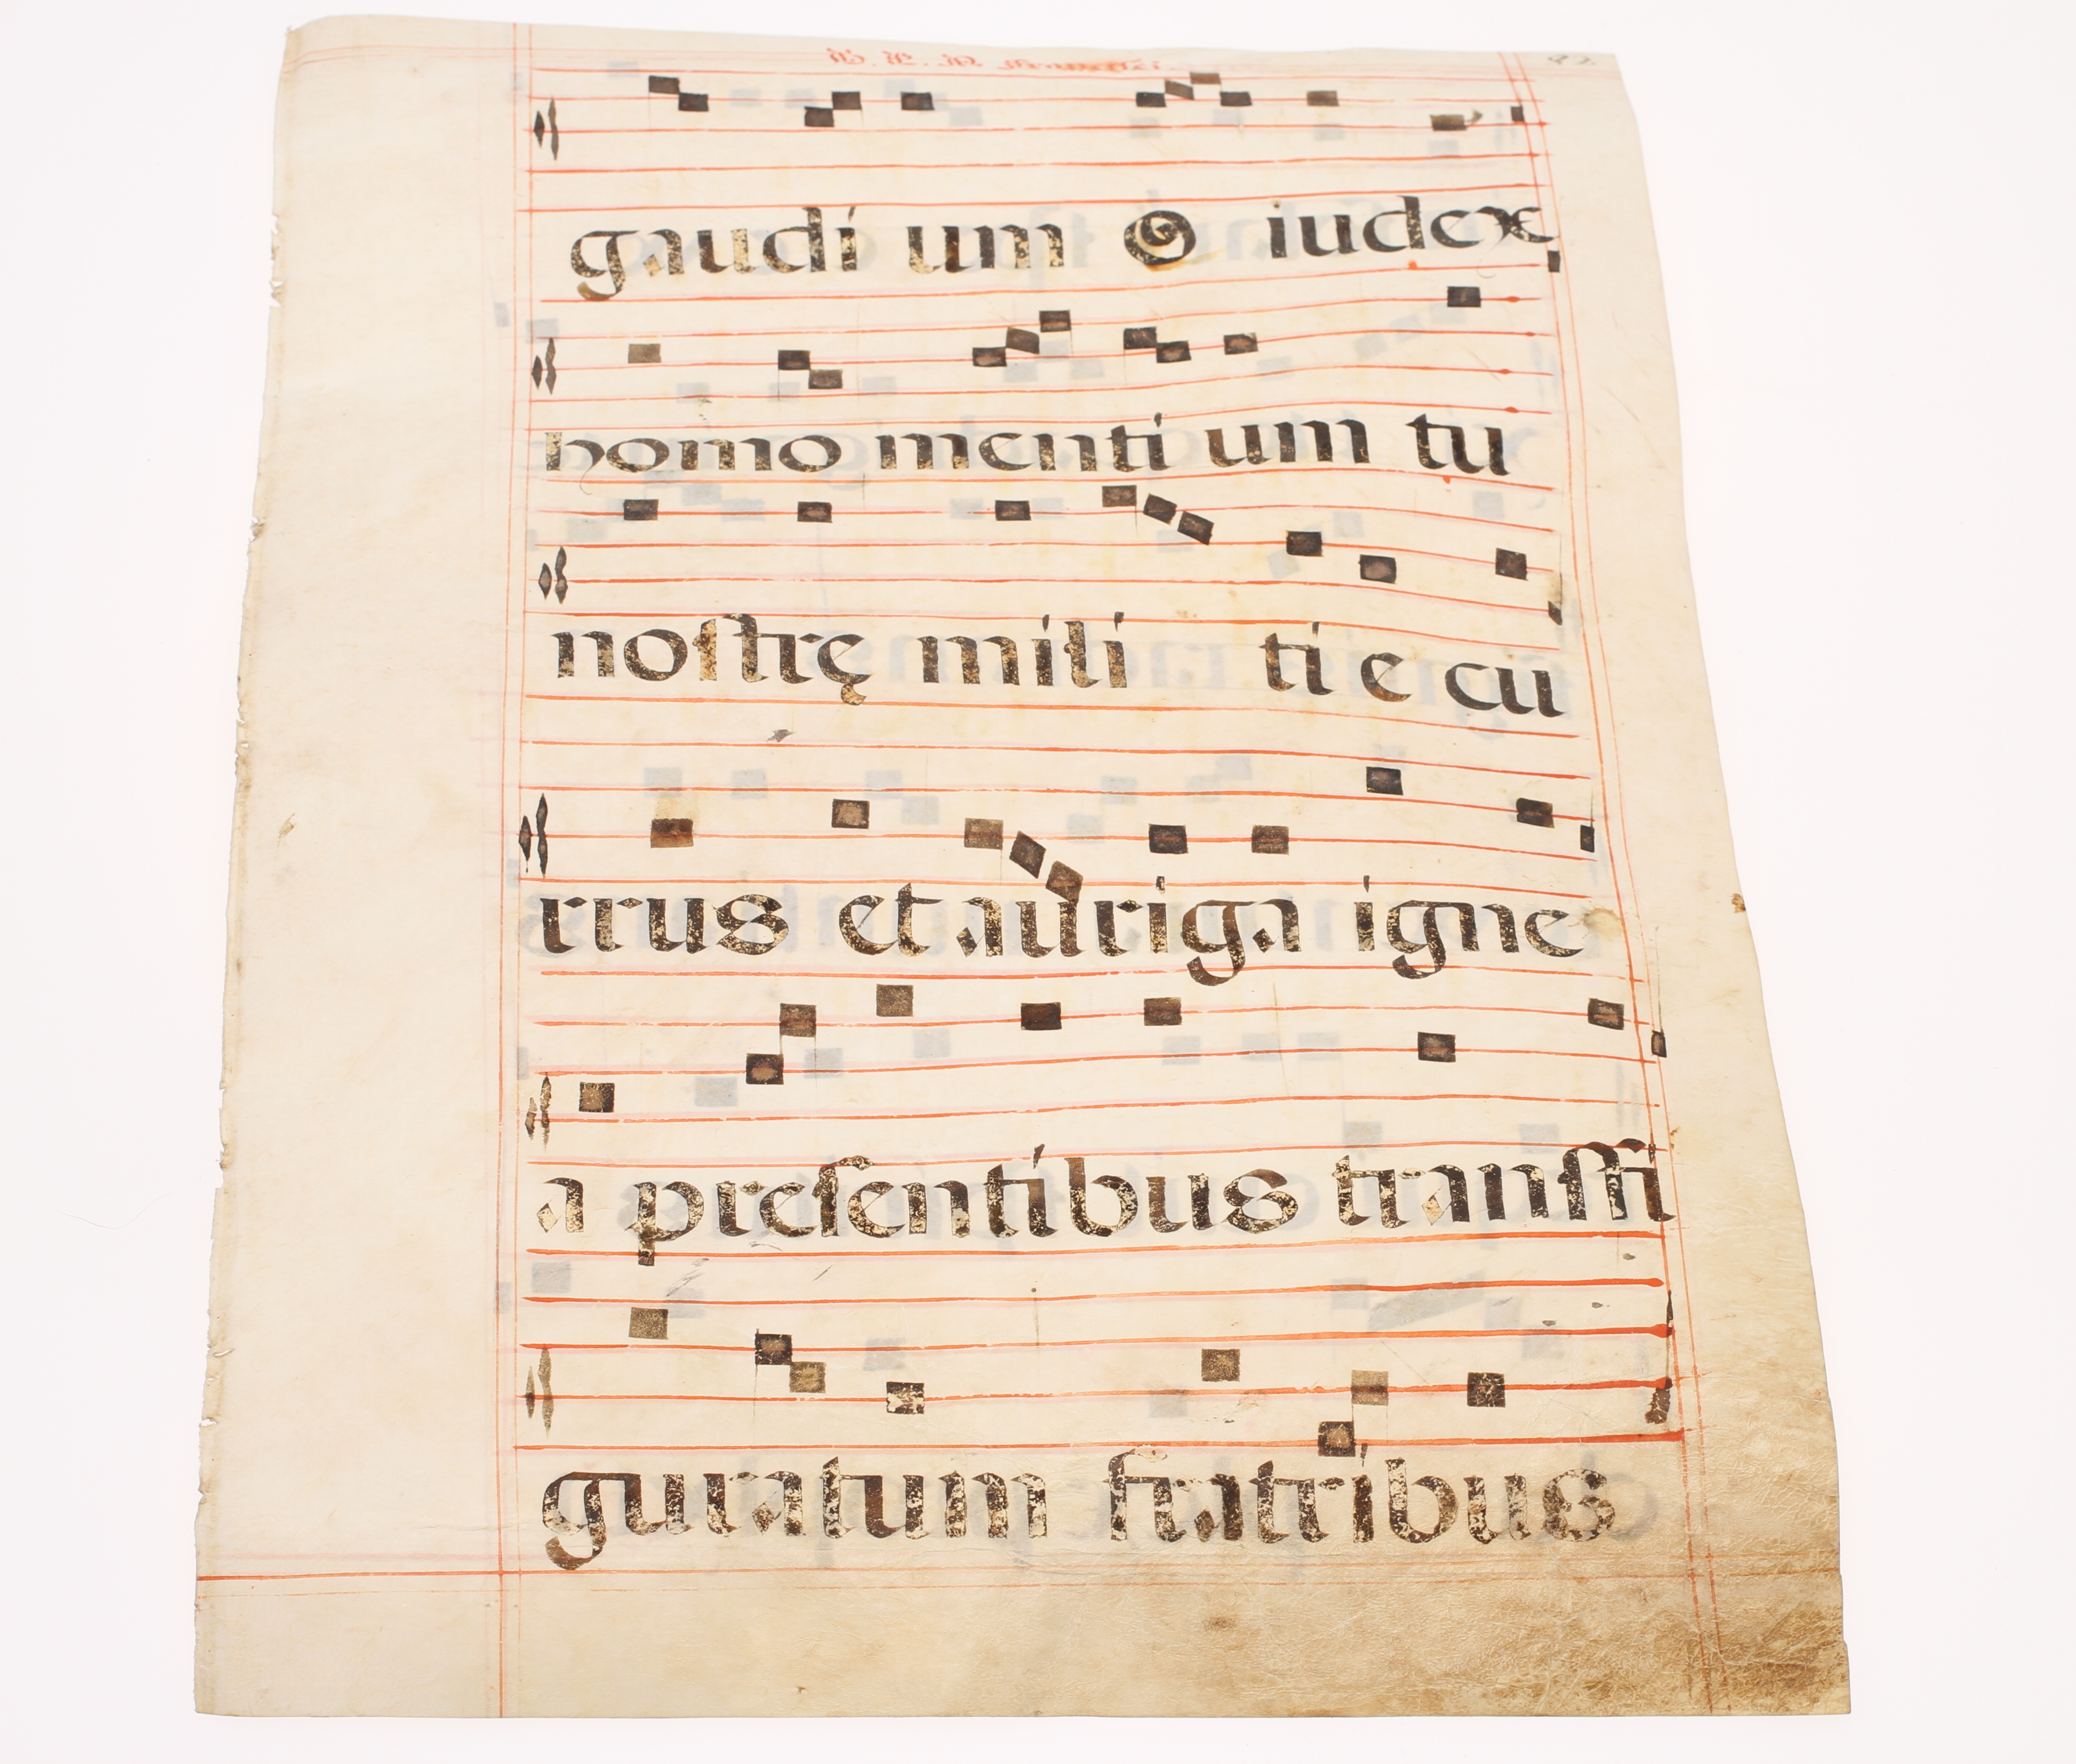 gaudi um O iudex
homo menti um tu
noſtrę mili ti e cu
rrus et auriga igne
a preſentibus tranſfi
guratum fratribus